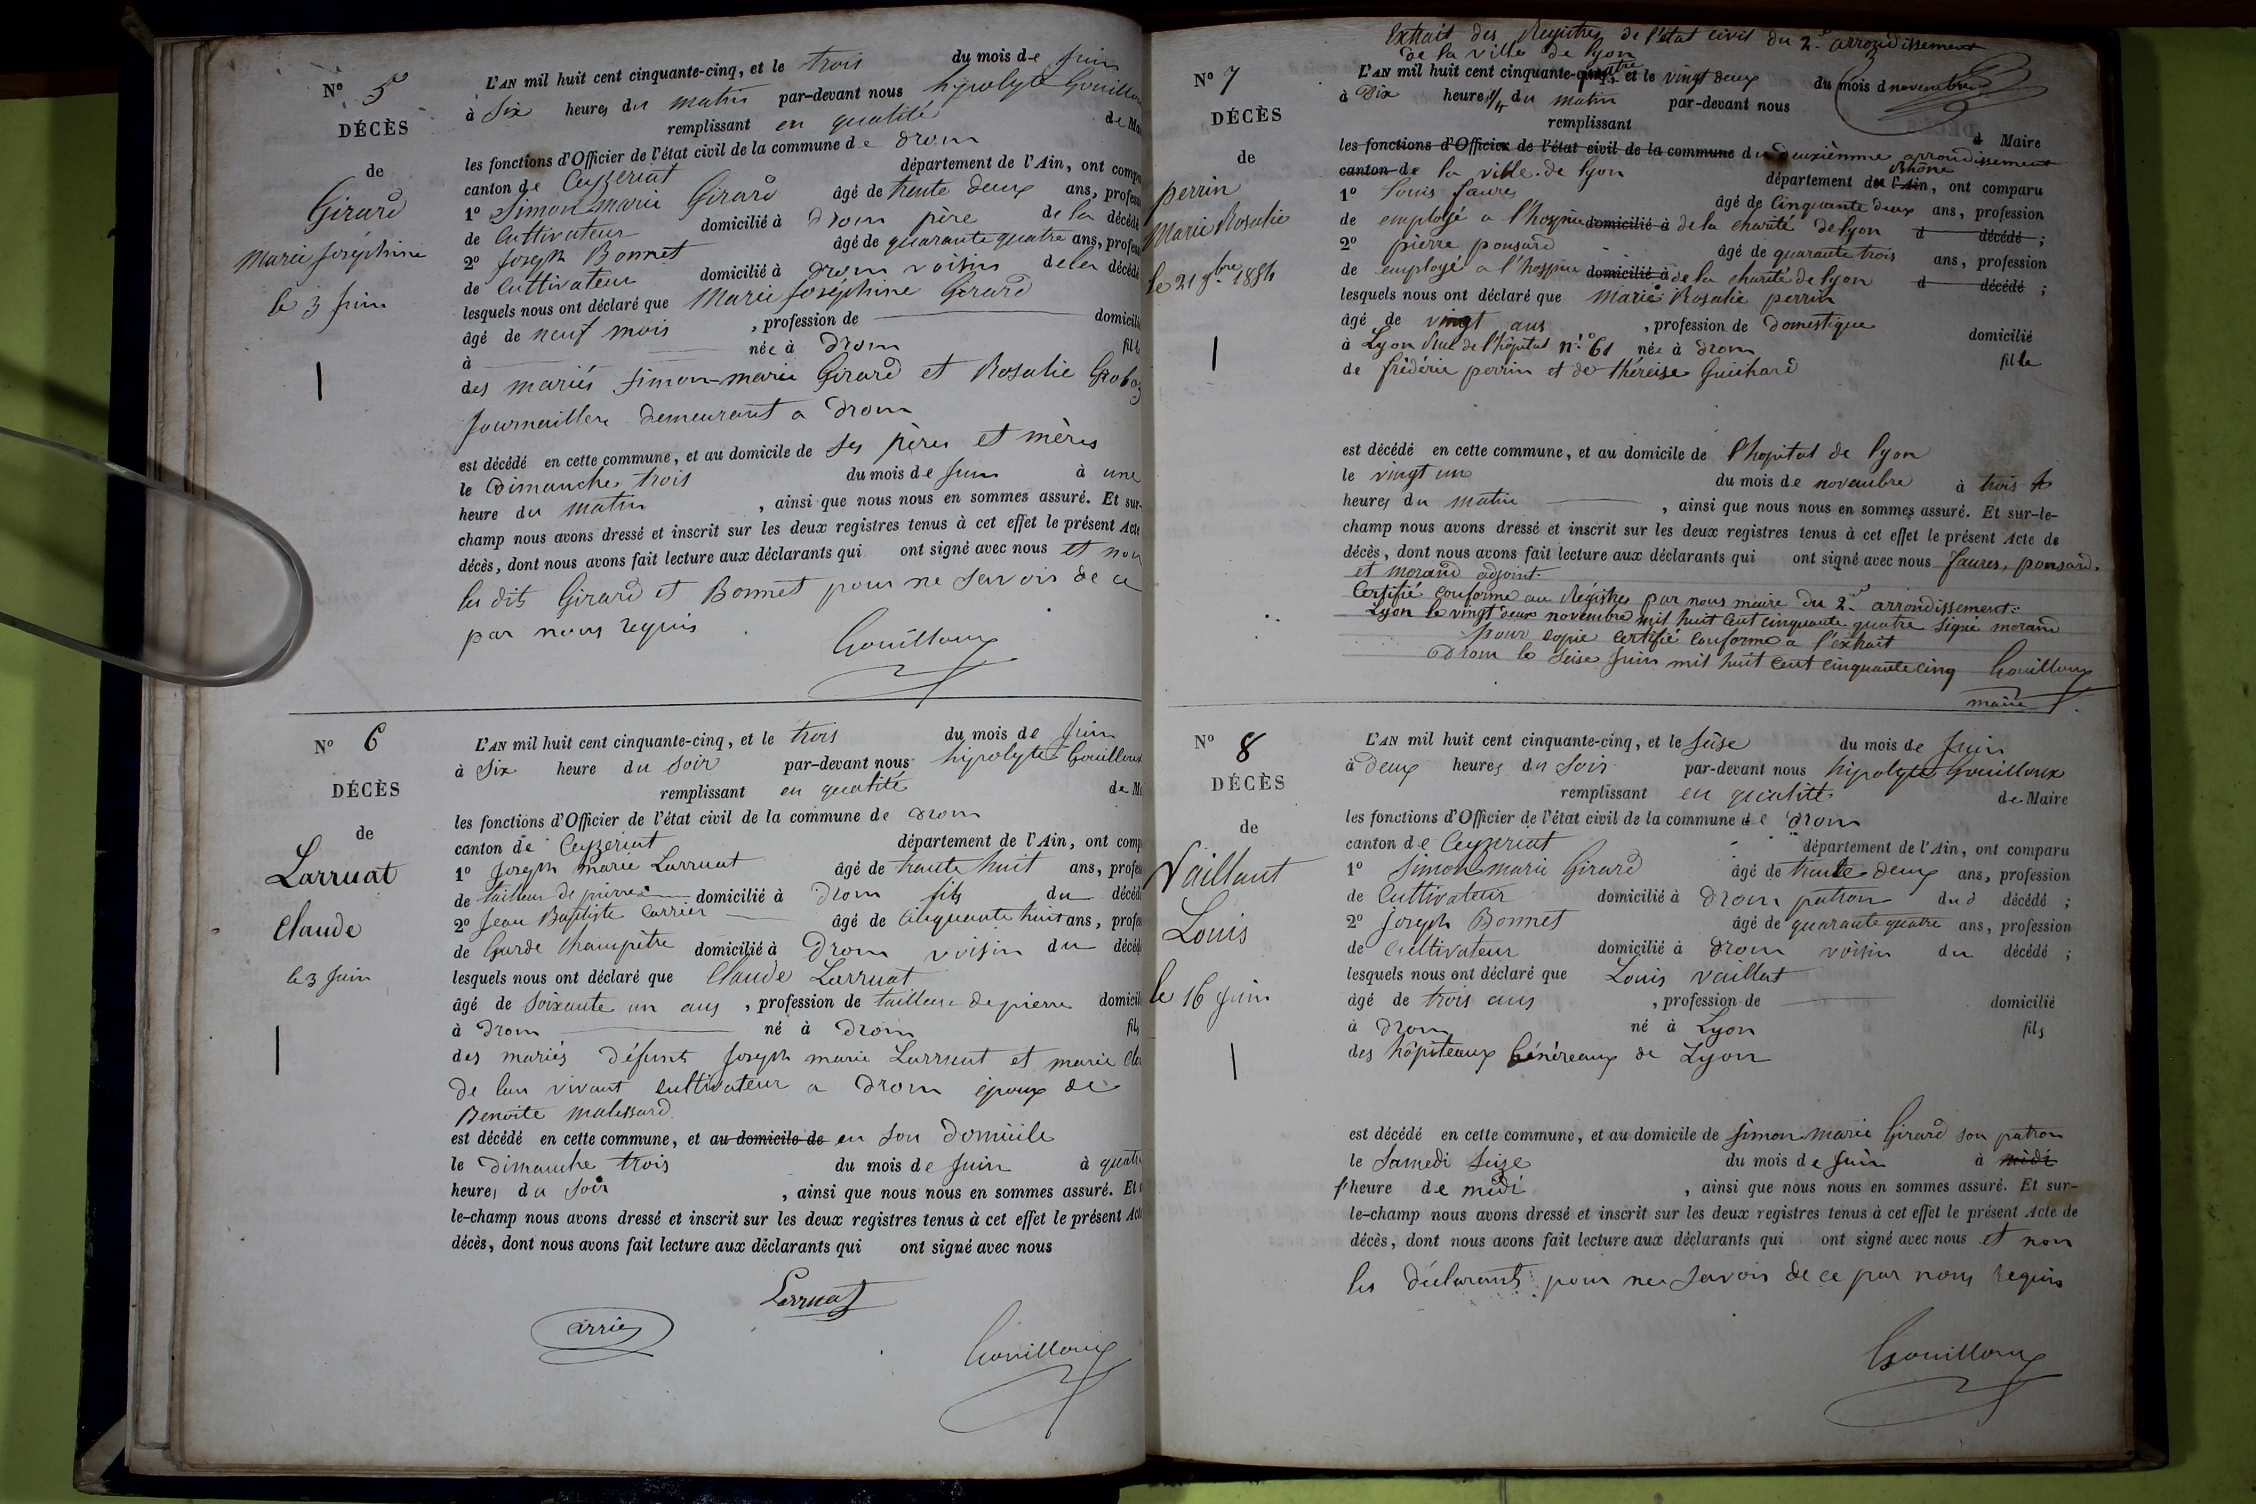 N° 5
DÉCÈS
de
Girard
Marie Joséphine
le 3 Juin
L'AN mil huit cent cinquante-cinq, et le trois du mois de Juin
à Six heures du matin par-devant nous hypolyte Gouilloux
remplissant en qualité de Ma
les fonctions d'Officier de l'état civil de la commune de Drom
canton de Ceyzeriat département de l'Ain, ont compa
1° Simon marie Girard âgé de trente deux ans, profess
de Cultivateur domicilié à Drom père de la décédé
2° Joseph Bonnet âgé de quarante quatre ans, profess
de Cultivateur domicilié à Drom voisin de la décédé
lesquels nous ont déclaré que Marie Joséphine Girard
âgé de neuf mois , profession de domicilié
à née à Drom fille
des mariés Simon-marie Girard et Rosalie Groboz
Journaillers demeurant a Drom
est décédé en cette commune, et au domicile de Ses pères et mères
le Dimanche trois du mois de Juin à une
heure du matin , ainsi que nous nous en sommes assuré. Et sur-
champ nous avons dressé et inscrit sur les deux registres tenus à cet effet le présent Acte
décès, dont nous avons fait lecture aux déclarants qui ont signé avec nous et non
les dits Girard et Bonnet pour ne Savoir de ce
par nous requis
Gouilloux
N° 6
DÉCÈS
de
Larruat
Claude
le 3 Juin
L'AN mil huit cent cinquante-cinq, et le trois du mois de Juin
à Six heure du soir par-devant nous hipolyte Gouilloux
remplissant en qualité de M
les fonctions d'Officier de l'état civil de la commune de Drom
canton de Ceyzeriat département de l'Ain, ont comp
1° Joseph Marie Larruat âgé de trente huit ans, profes
de tailleur de pierres domicilié à Drom fils du décédé
2° Jean Baptiste Carrier âgé de Cinquante huit ans, profes
de Garde Champêtre domicilié à Drom voisin du décédé
lesquels nous ont déclaré que Claude Larruat
âgé de Soixante un ans , profession de tailleur de pierre domicil
à Drom né à Drom fils
des mariés défunts Joseph marie Larruat et marie
de leur vivant cultivateur a Drom époux de
Benoite Malissard
est décédé en cette commune, et au domicile de en Son Domicile
le Dimanche trois du mois de Juin à quatre
heures du Soir , ainsi que nous nous en sommes assuré. Et
le-champ nous avons dressé et inscrit sur les deux registres tenus à cet effet le présent Acte
décès, dont nous avons fait lecture aux déclarants qui ont signé avec nous
Larruat
Carrier
Gouilloux
Extrait des Registres de l'état civil du 2e arrondissement
de la ville de Lyon
N° 7
DÉCÈS
de
perrin
Marie Rosalie
le 21 9bre 1854
L'AN mil huit cent cinquante-quatre et le vingt deux du mois d novembre
à Dix heures 1/4 du matin par-devant nous
remplissant d Maire
les fonctions d'Officier de l'état civil de la commune du deuxièmme arrondissement
canton de la ville de Lyon département du l'Ain Rhône, ont comparu
1° Louis faures âgé de Cinquante deux ans, profession
de employé a l'hospice domicilié à de la charité de Lyon d décédé ;
2° pierre ponsard âgé de quarante trois ans, profession
de employé a l'hospice domicilié à de la charité de lyon d décédé ;
lesquels nous ont déclaré que Marie Rosalie perrin
âgé de vingt ans , profession de Domestique domicilié
à Lyon Rue de l'hôpital n° 61 née à Drom fille
de frédéric perrin et de théreise Guichard
est décédé en cette commune, et au domicile de l'hopital de lyon
le vingt un du mois de novembre à trois
heures du matin , ainsi que nous nous en sommes assuré. Et sur-le-
champ nous avons dressé et inscrit sur les deux registres tenus à cet effet le présent Acte de
décès, dont nous avons fait lecture aux déclarants qui ont signé avec nous faures, ponsard.
et morand adjoint.
Certifié conforme au Régistre par nous maire du 2e arrondissement
Lyon le vingt deux novembre mil huit cent cinquante quatre Signé morand
pour copie certifié conforme a l'extrait
Drom le Seise Juin mil huit cent cinquante cinq Gouilloux
maire
N° 8
DÉCÈS
de
Vaillant
Louis
le 16 Juin
L'AN mil huit cent cinquante-cinq, et le Seise du mois de Juin
à Deux heures du Soir par-devant nous hipolyte Gouilloux
remplissant en qualité de Maire
les fonctions d'Officier de l'état civil de la commune de Drom
canton de Ceyzeriat département de l'Ain, ont comparu
1° Simon marie Girard âgé de trente deux ans, profession
de Cultivateur domicilié à Drom patron du d décédé ;
2° Joseph Bonnet âgé de quarante quatre ans, profession
de Cultivateur domicilié à Drom voisin du décédé ;
lesquels nous ont déclaré que Louis vaillat
âgé de trois ans , profession de domicilié
à Drom né à Lyon fils
des hôpiteaux Généreaux de Lyon
est décédé en cette commune, et au domicile de Simon marie Girard son patron
le Samedi Seize du mois de Juin à midi
l'heure de midi , ainsi que nous nous en sommes assuré. Et sur-
le-champ nous avons dressé et inscrit sur les deux registres tenus à cet effet le présent Acte de
décès, dont nous avons fait lecture aux déclarants qui ont signé avec nous et non
les déclarants pour ne Savoir de ce par nous requis
Gouilloux